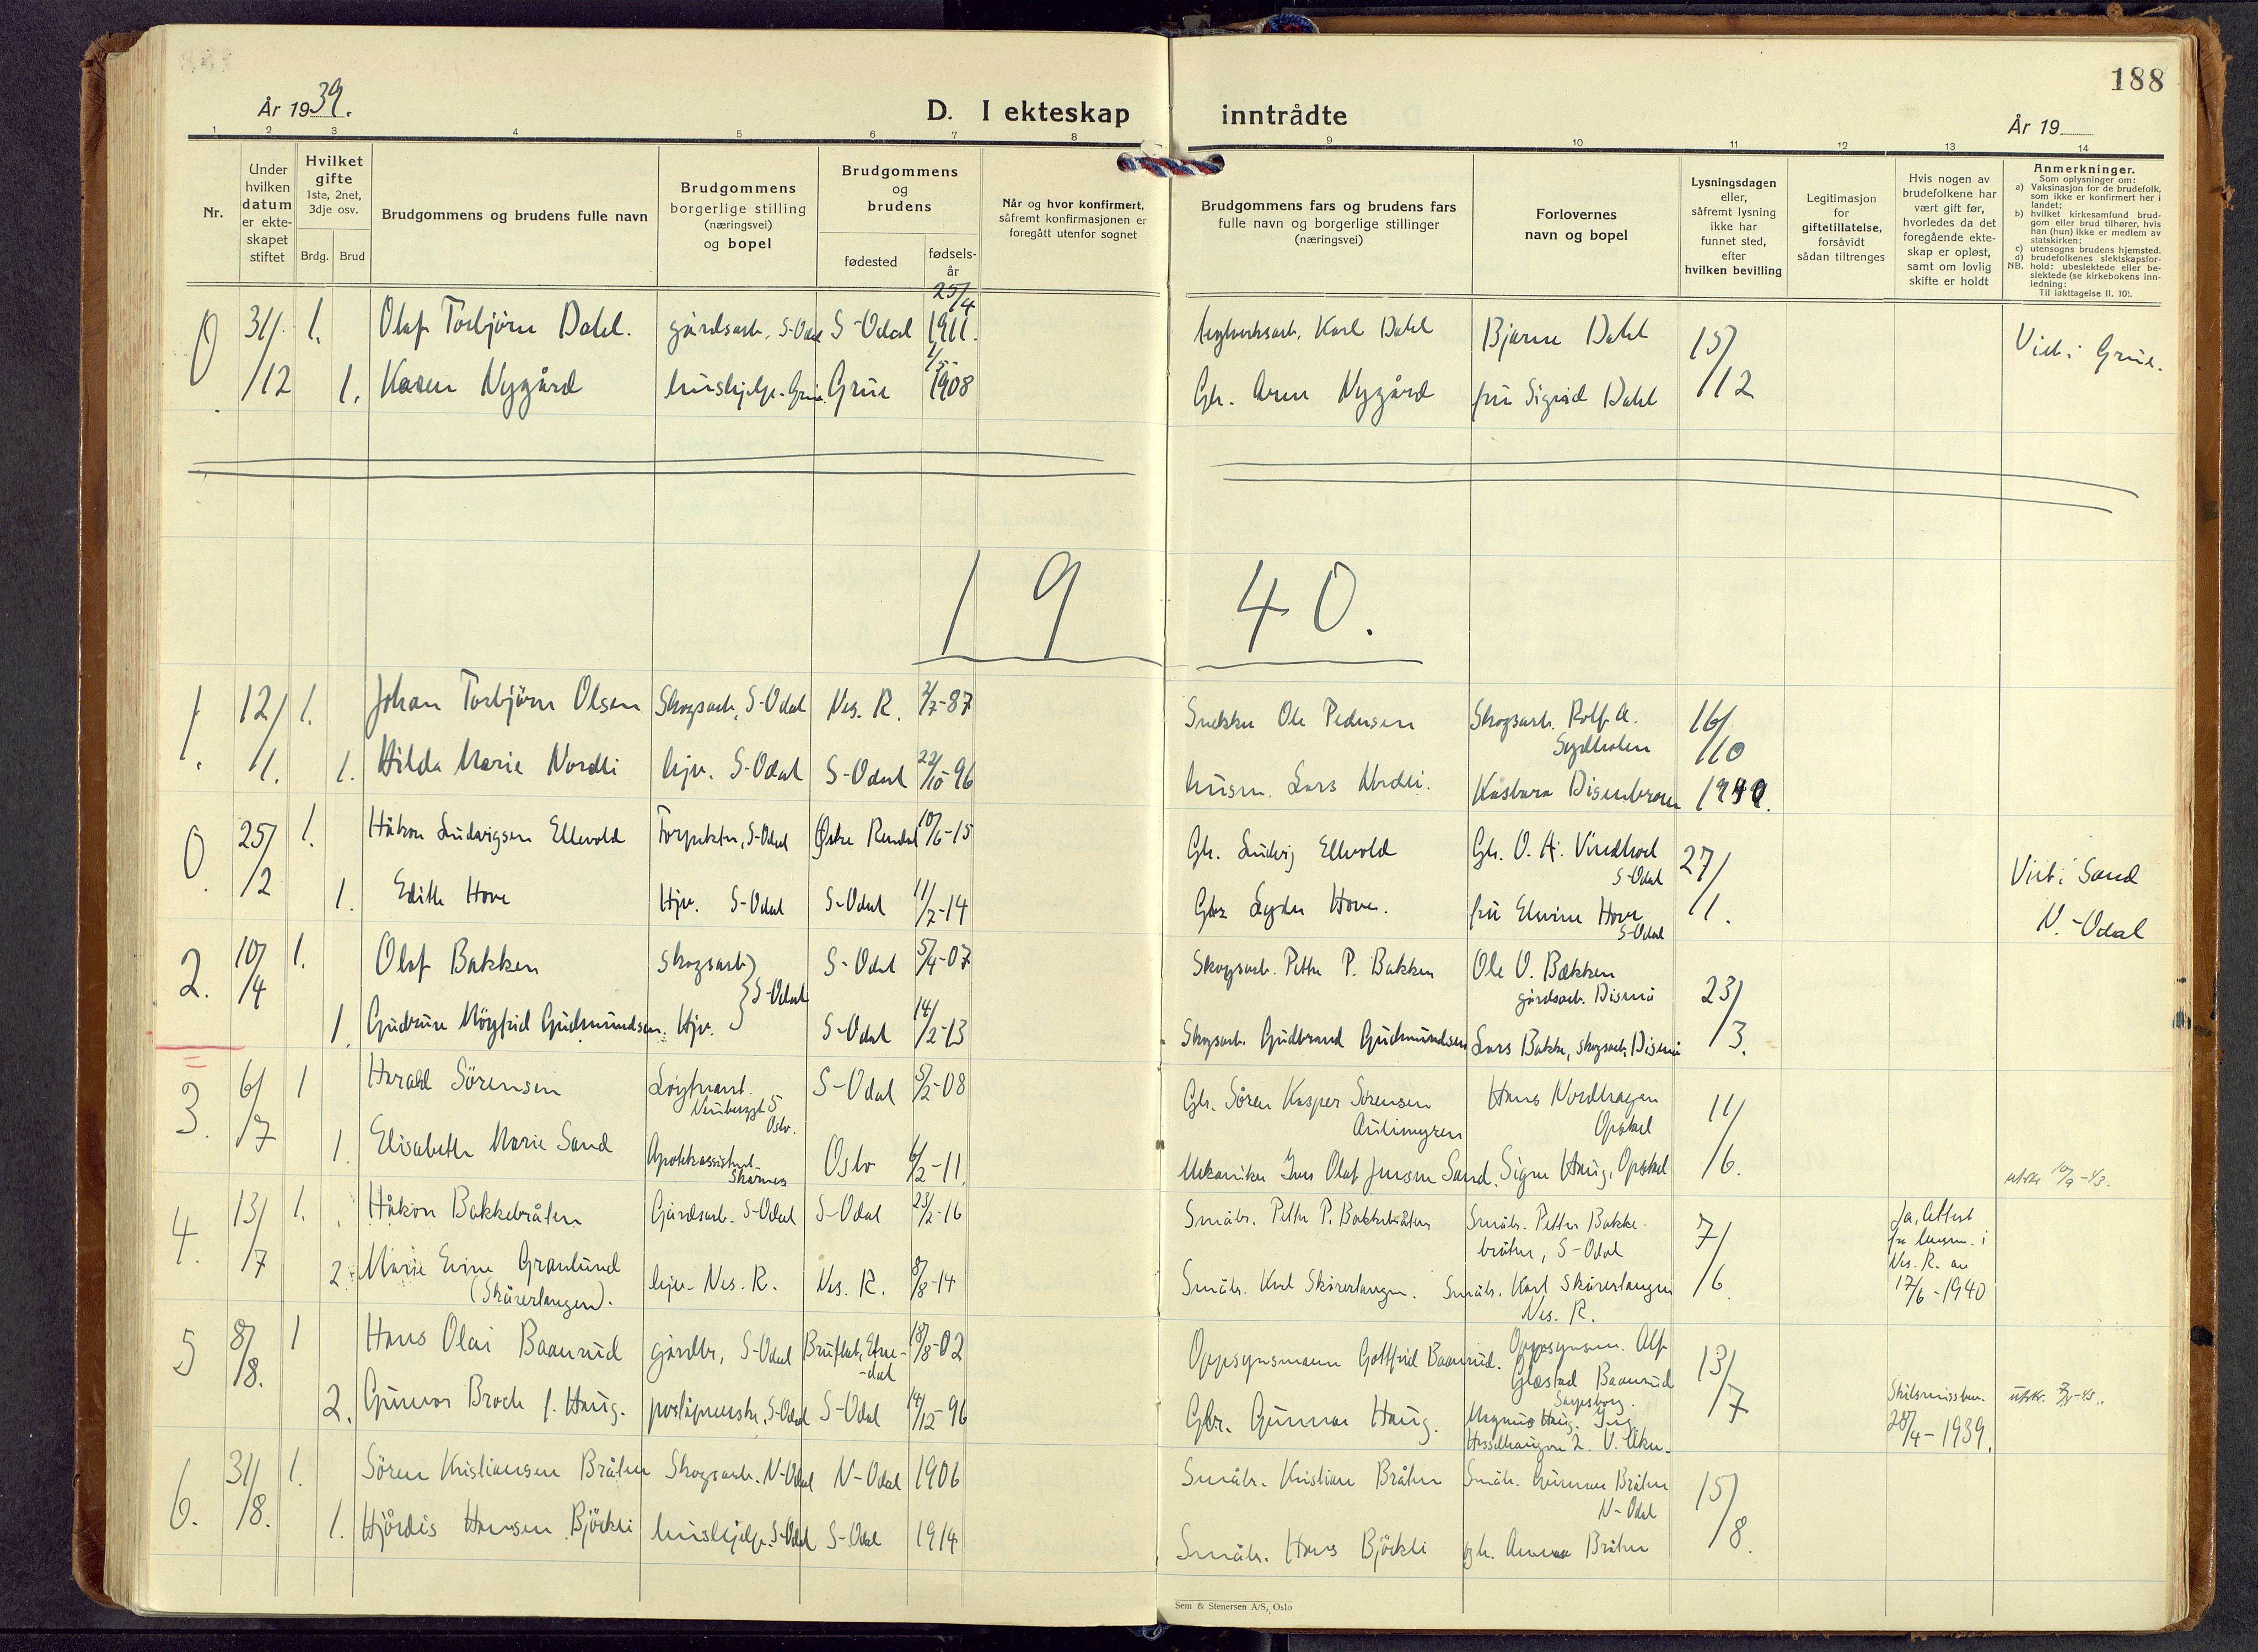 188
År 1939.
D. I ekteskap inntrådte
År 19
1 2 3 4 5 6 7 8 9 10 11 12 13 14
Nr.
Under hvilken datum er ekteskapet stiftet
Hvilket gifte
1ste, 2net, 3dje osv.
Brdg. Brud
Brudgommens og brudens fulle navn
Brudgommens borgerlige stilling (næringsvei) og bopel
Brudgommens og brudens
fødested
fødsels-år
Når og hvor konfirmert, såfremt konfirmasjonen er foregått utenfor sognet
Brudgommens fars og brudens fars fulle navn og borgerlige stillinger (næringsvei)
Forlovernes navn og bopel
Lysningsdagen eller, såfremt lysning ikke har funnet sted, efter hvilken bevilling
Legitimasjon for giftetillatelse, forsåvidt sådan tiltrenges
Hvis nogen av brudefolkene har vært gift før, hvorledes da det foregående ekteskap er opløst, samt om lovlig skifte er holdt
Anmerkninger.
Som oplysninger om:
a) Vaksinasjon for de brudefolk, som ikke er konfirmert her i landet;
b) hvilket kirkesamfund brudgom eller brud tilhører, hvis han (hun) ikke er medlem av statskirken;
c) utensogns brudens hjemsted.
d) brudefolkenes slektskapsforhold: ubeslektede eller beslektede (se kirkebokens innledning:
NB.
Til iakttagelse II. 10).
0. 31/12 1. Olaf Torbjörn Dahl. gårdsarb. S-Odal S-Odal 25/4 1911. Karl Dahl Bjarne Dahl 15/12 Viet i Grue.
1. Karen Nygård hushjelp. Grue. Grue 1908 Gbr. Arne Nygård fru Sigrid Dahl
1940.
1. 12/1. 1. Johan Torbjörn Olsen Skogsarb, S-Odal Nes. R. 2/7-87 Snekker Ole Pedersen Skogsarb. Rolf A. 16/10
1. Hilda Marie Nordli hjv. S-Odal S-Odal 22/10-96 husm. Lars Nordli. Disenbroen
0. 25/2 1. Håkon Ludvigsen Ellevold S-Odal Østre Rendal 10/6-15 Gbr. Ludvig Ellevold Gbr. O. H. S-Odal 27/1. Viet i Sand
1. Edith Hove Hjv. S-Odal S-Odal 11/7-14 Gbr. Hove. fru Elvine Hove S-Odal N.-Odal
2. 10/4 1. Olaf Bakken skogsarb S-Odal S-Odal 5/4-07 Skogsarb. Petter P. Bakken Ole O. Bakken gårdsarb. Disenå 23/3.
1. Gudrun Möyfrid Gudmundsen. Hjv. S-Odal 14/2-13 Skogsarb. Gudbrand Gudmundsen Lars Bakke, skogsarb, Disenå
3. 6/7 1 Harald Sörensen Löytnant. Oslo. S-Odal 5/2-08 Gbr. Sören Kasper Sörensen Hans Nordhagen Opstad 11/6.
1. Elisabeth Marie Sand Apotekassistent Skarnes Oslo 6/2-11. Mekaniker Olaf Jensen Sand. Signe Haug, Opstad
4. 13/7 1. Håkon Bakkebråten Gårdsarb. S-Odal S-Odal 23/2-16 Småbr. Petter P. Bakkebråten Småbr. Petter Bakkebråten, S-Odal 7/6 Ja, Attest fra lensm. i Nes. R. av 17/6-1940
utskr. 10/9-43.
2. Marie Evine Granlund (Skårerlangen). hjv. Nes. R. Nes. R. 8/8-14 Småbr. Karl Skårerlangen. Småbr. Karl Skårerlangen Nes. R.
5 8/8. 1 Hans Olai Baanrud gårdbr, S-Odal Bruflat, Etnedal 18/8-02 Oppsynsmann Gottfrid Baanrud. Oppsynsm. Alf Baanrud Sarpsborg. 13/7
2. Gunvor Broch f. Haug. S-Odal S-Odal 14/12-96 Gbr. Gunnar Haug. Magnus Haug. Skilsmissbev. 28/4-1939.
6. 31/8. 1. Sören Kristiansen Bråten Skogsarb. N-Odal N-Odal 1906 Småbr. Kristian Bråten Småbr. Gunnar Bråten N-Odal 15/8.
1. Hjördis Hansen Björkli hushjelp. S-Odal S-Odal 1914 Småbr. Hans Björkli Bråten
Sem & Stenersen A/S, Oslo